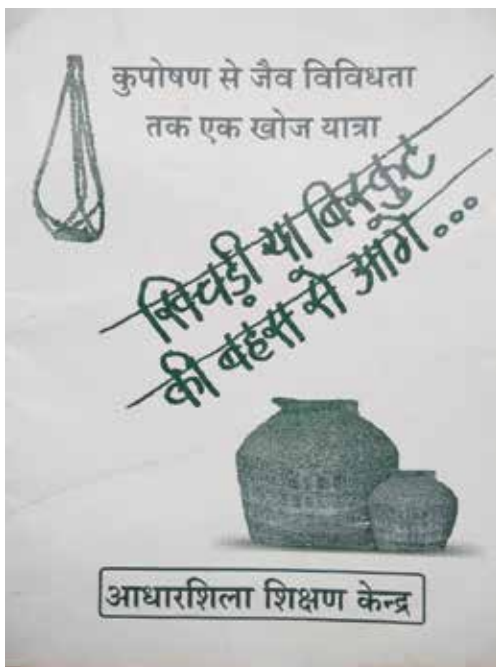 कुपोषण से जैव विविधता
तक एक खोज यात्रा
खिचड़ी या बिस्कुट
की बहस से आगे...
आधारशिला शिक्षण केन्द्र